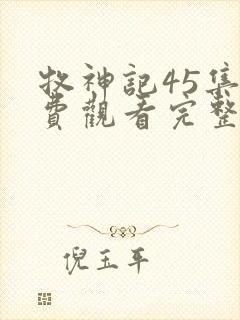 牧神記45集
費觀看完整
倪玉平